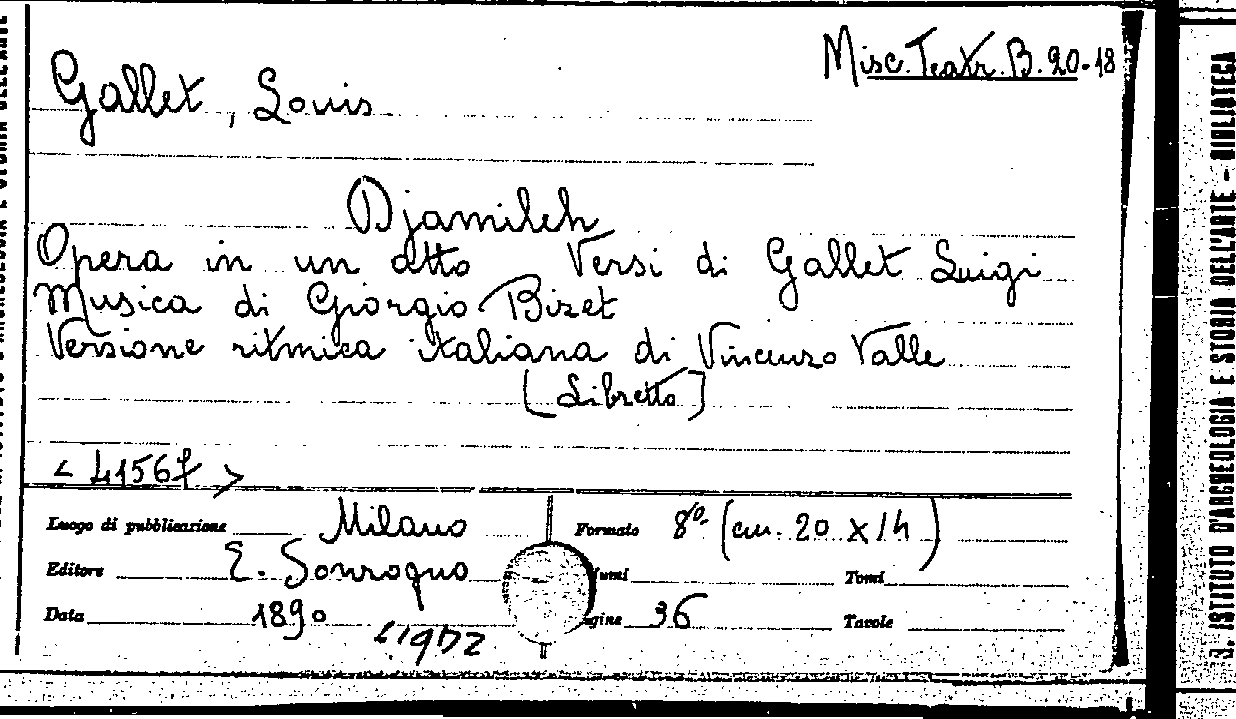 Misc. Teatr. B. 20-18
Gallet, Louis
Djamileh
Opera in un atto Versi di Gallet Luigi
Musica di Giorgio Bizet
Versione ritmica italiana di Vincenzo Valle
[Libretto]
< 41567 >
Luogo di pubblicazione Milano Formato 8º. (cm. 20 x 14)
Editore E. Sonzogno lumi Tomi
Data 1890 gine 36 Tavole
ISTITUTO D'ARCHEOLOGIA E STORIA DELL'ARTE - BIBLIOTECA